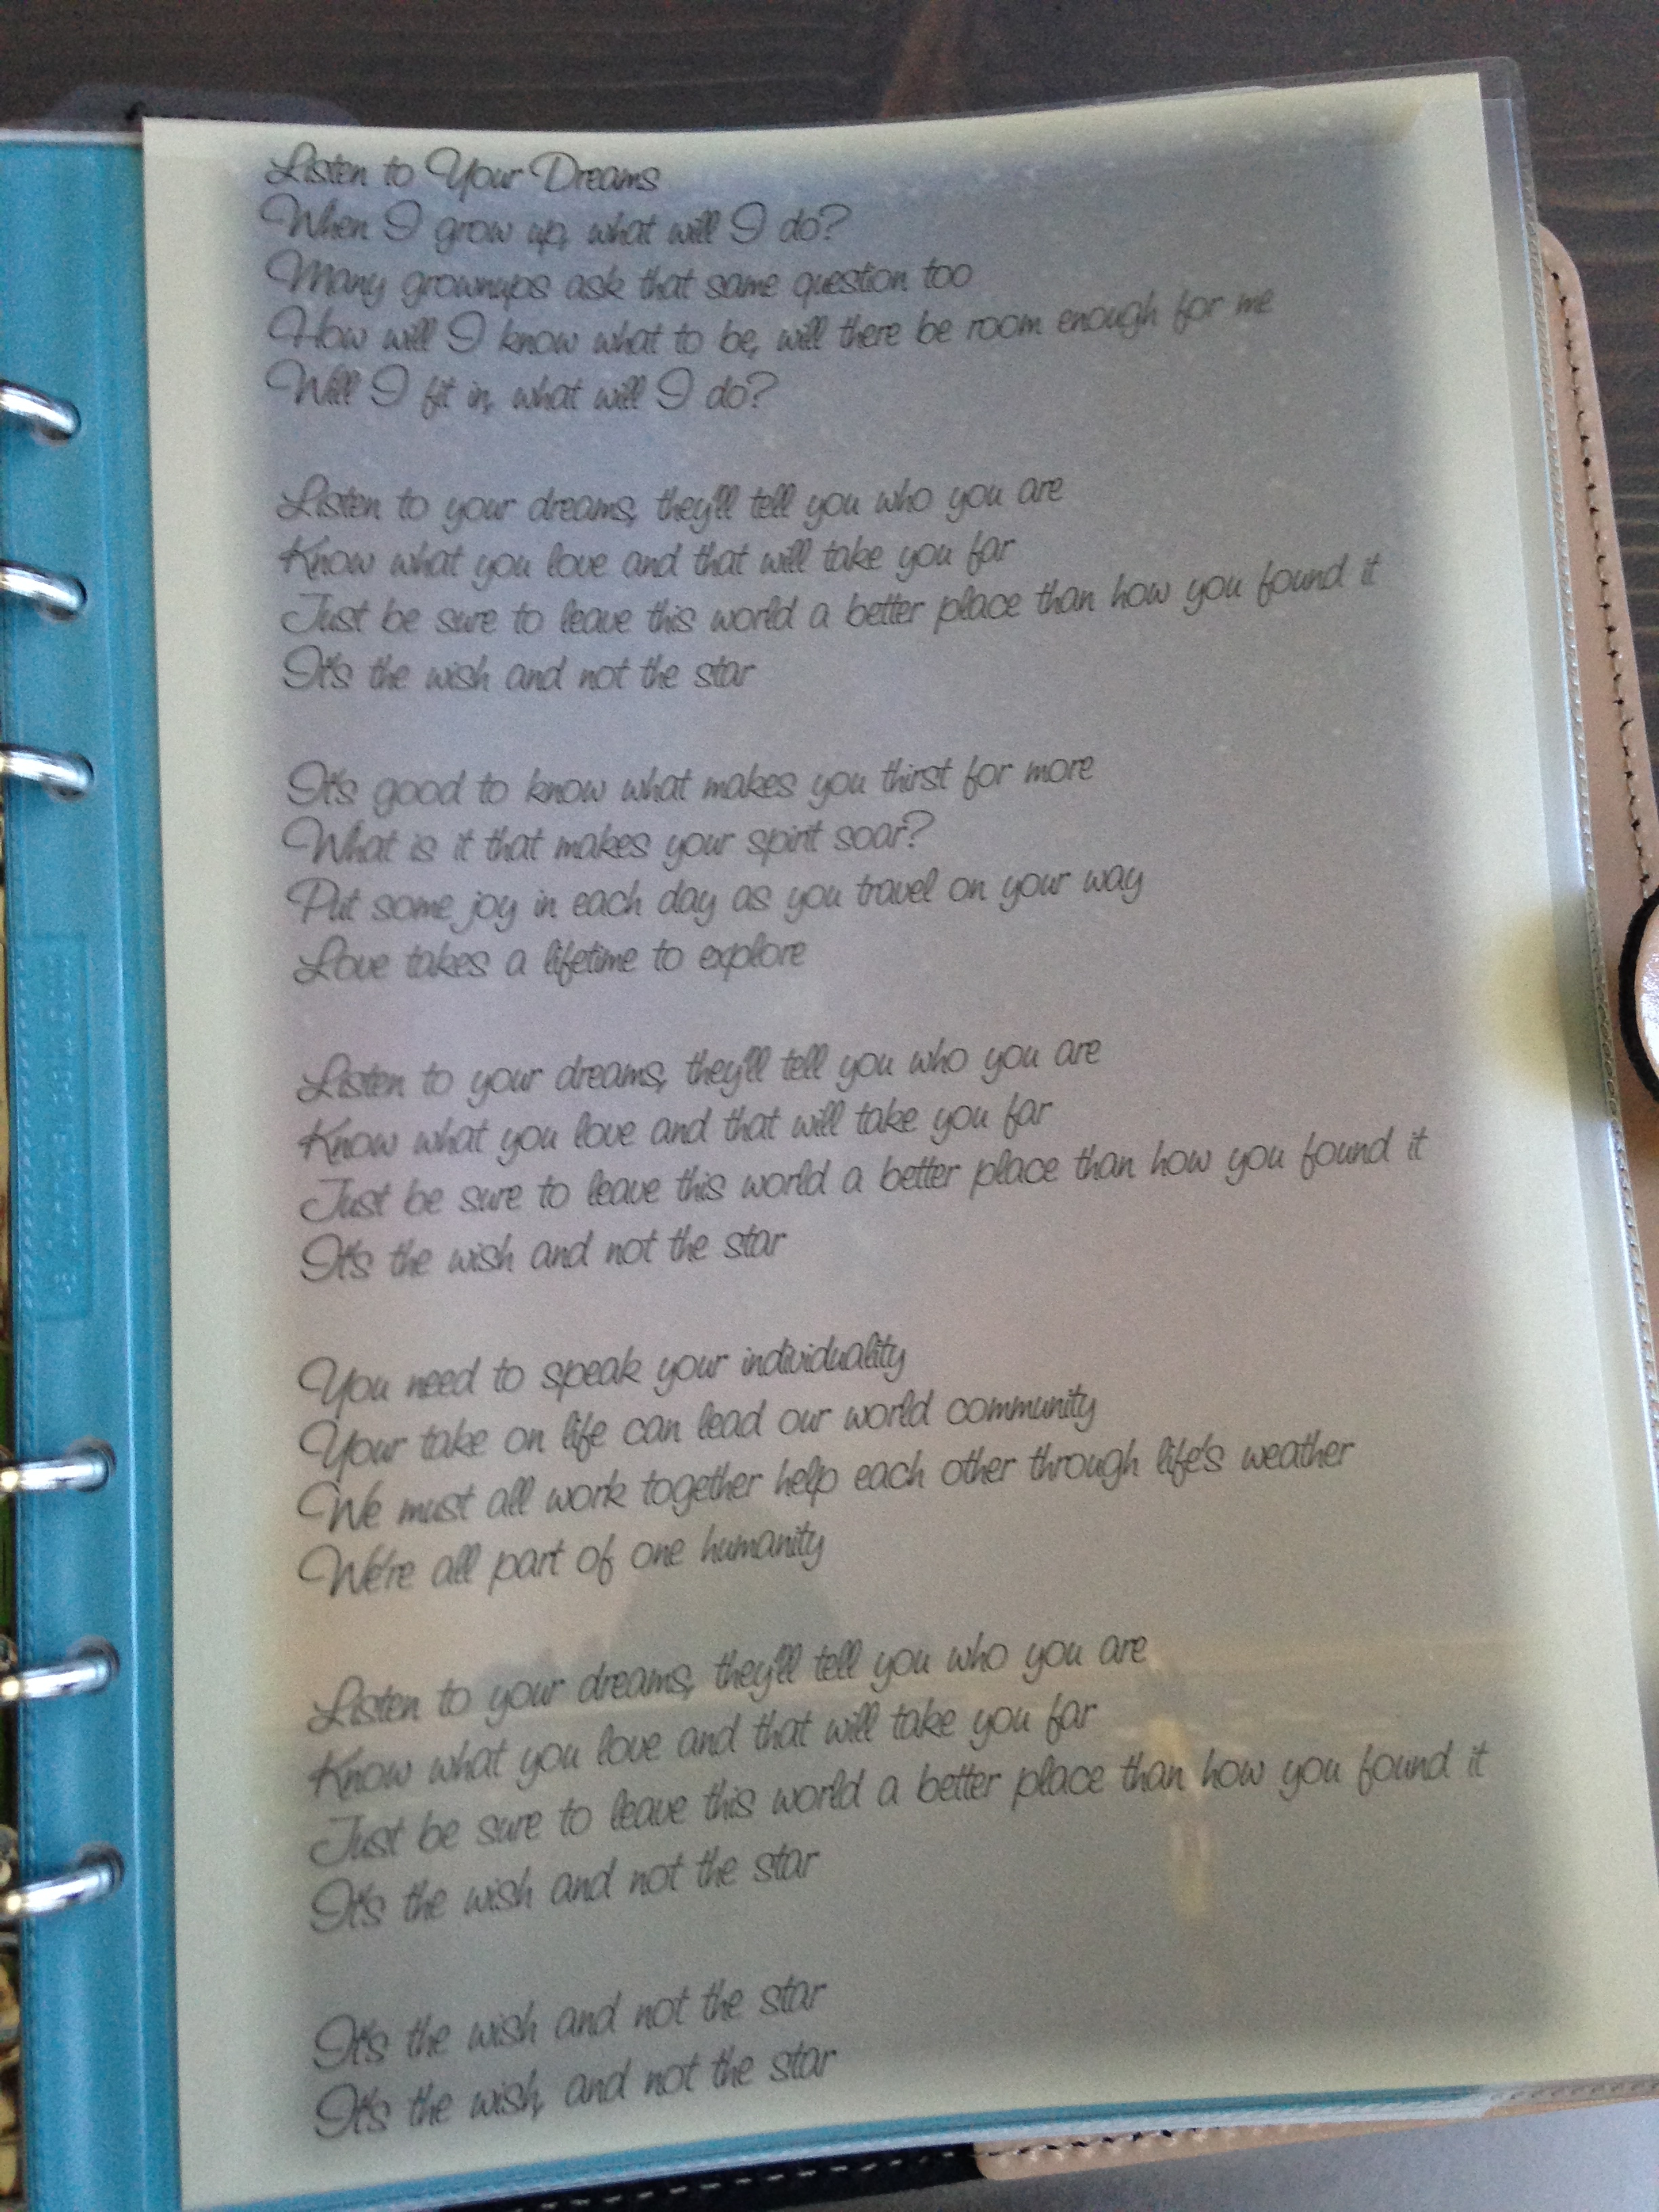 Listen to Your Dreams
When I grow up, what will I do?
Many grownups ask that same question too
How will I know what to be, will there be room enough for me
Will I fit in, what will I do?
Listen to your dreams, they'll tell you who you are
Know what you love and that will take you far
Just be sure to leave this world a better place than how you found it
It's the wish and not the star
It's good to know what makes you thirst for more
What is it that makes your spirit soar?
Put some joy in each day as you travel on your way
Love takes a lifetime to explore
Listen to your dreams, they'll tell you who you are
Know what you love and that will take you far
Just be sure to leave this world a better place than how you found it
It's the wish and not the star
You need to speak your individuality
Your take on life can lead our world community
We must all work together help each other through life's weather
We're all part of one humanity
Listen to your dreams, they'll tell you who you are
Know what you love and that will take you far
Just be sure to leave this world a better place than how you found it
It's the wish and not the star
It's the wish and not the star
It's the wish, and not the star